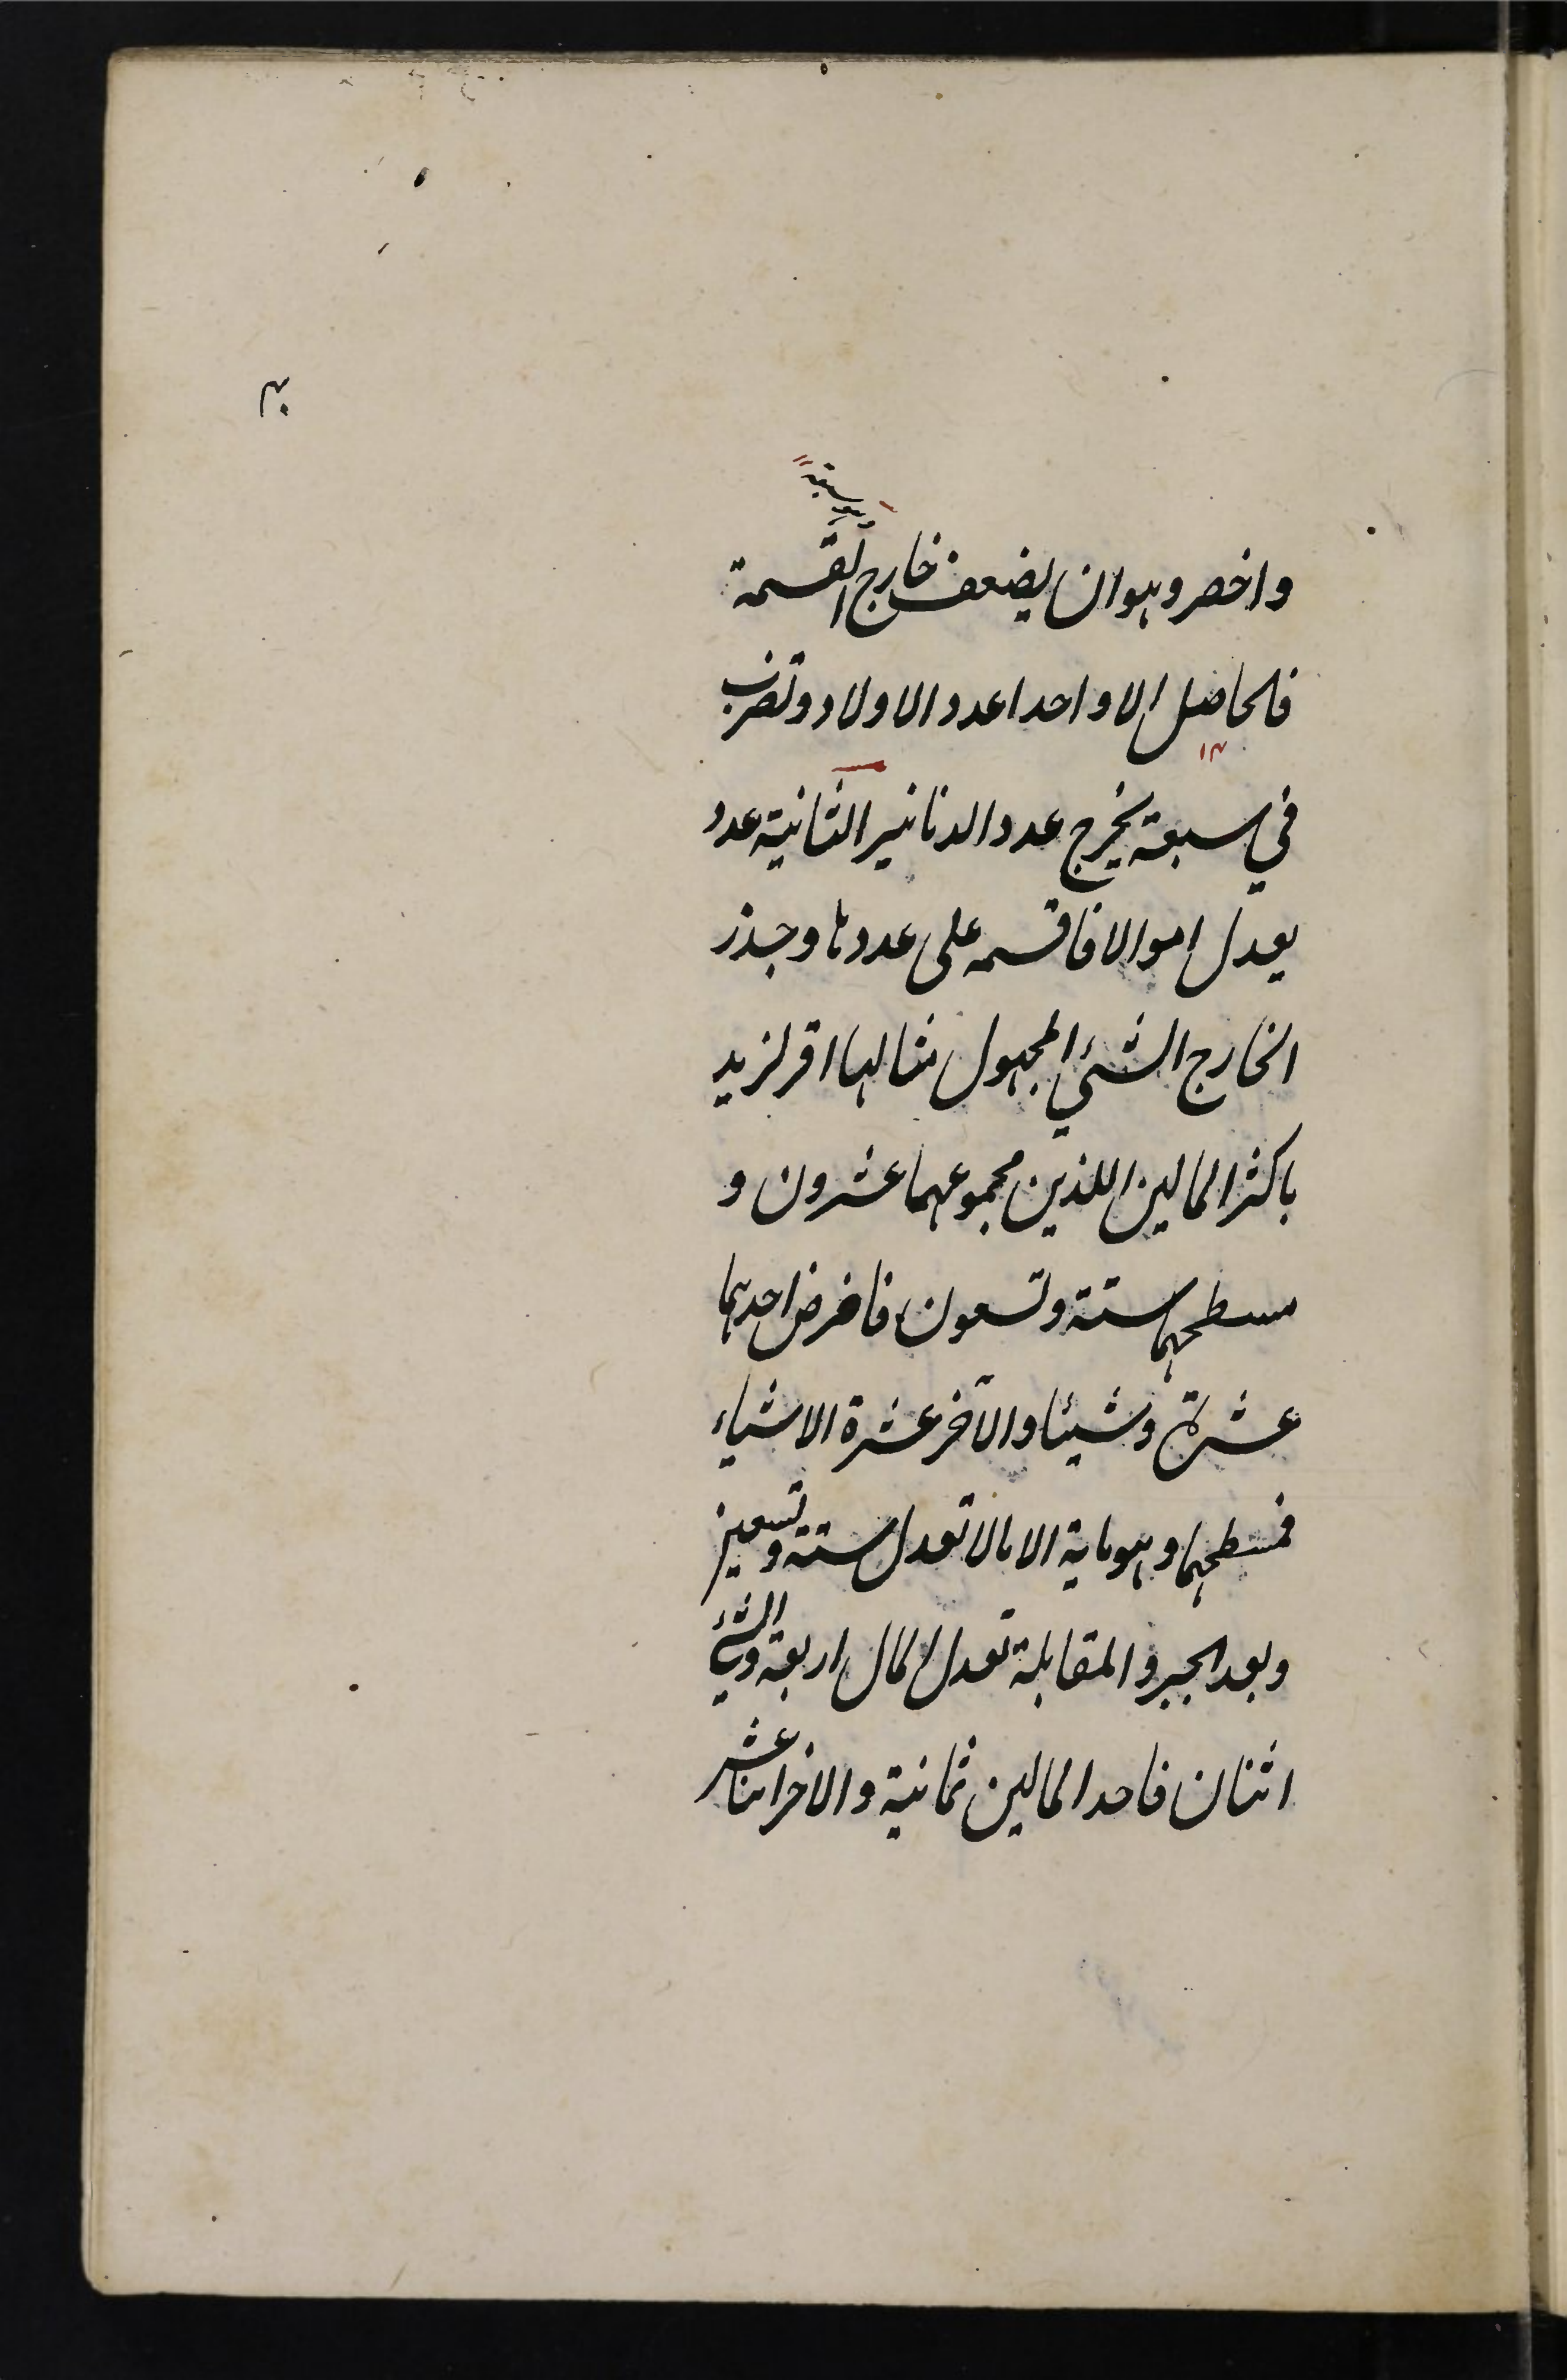 وهو سبعة
واخصر وهو ان يضعف خارج القسمة
فالحاصل الا واحدا عدد الاولاد وتضرب
١٣
في سبعة يخرج عدد الدنانير الثانية عدد
يعدل اموالا فاقسمه على عددها وجذر
الخارج الشيئ المجهول مثالها اقر لزيد
باكثر المالين اللذين مجموعهما عشرون و
مسطحهما ستة وتسعون فافرض احدهما
عشرة وشيئا والآخر عشرة الا شياء
فمسطحهما وهو ماية الا مالا تعدل ستة وتسعين
وبعد الجبر والمقابلة تعدل المال اربعة والشيئ
اثنان فاحد المالين ثمانية والاخر اثنا عشر